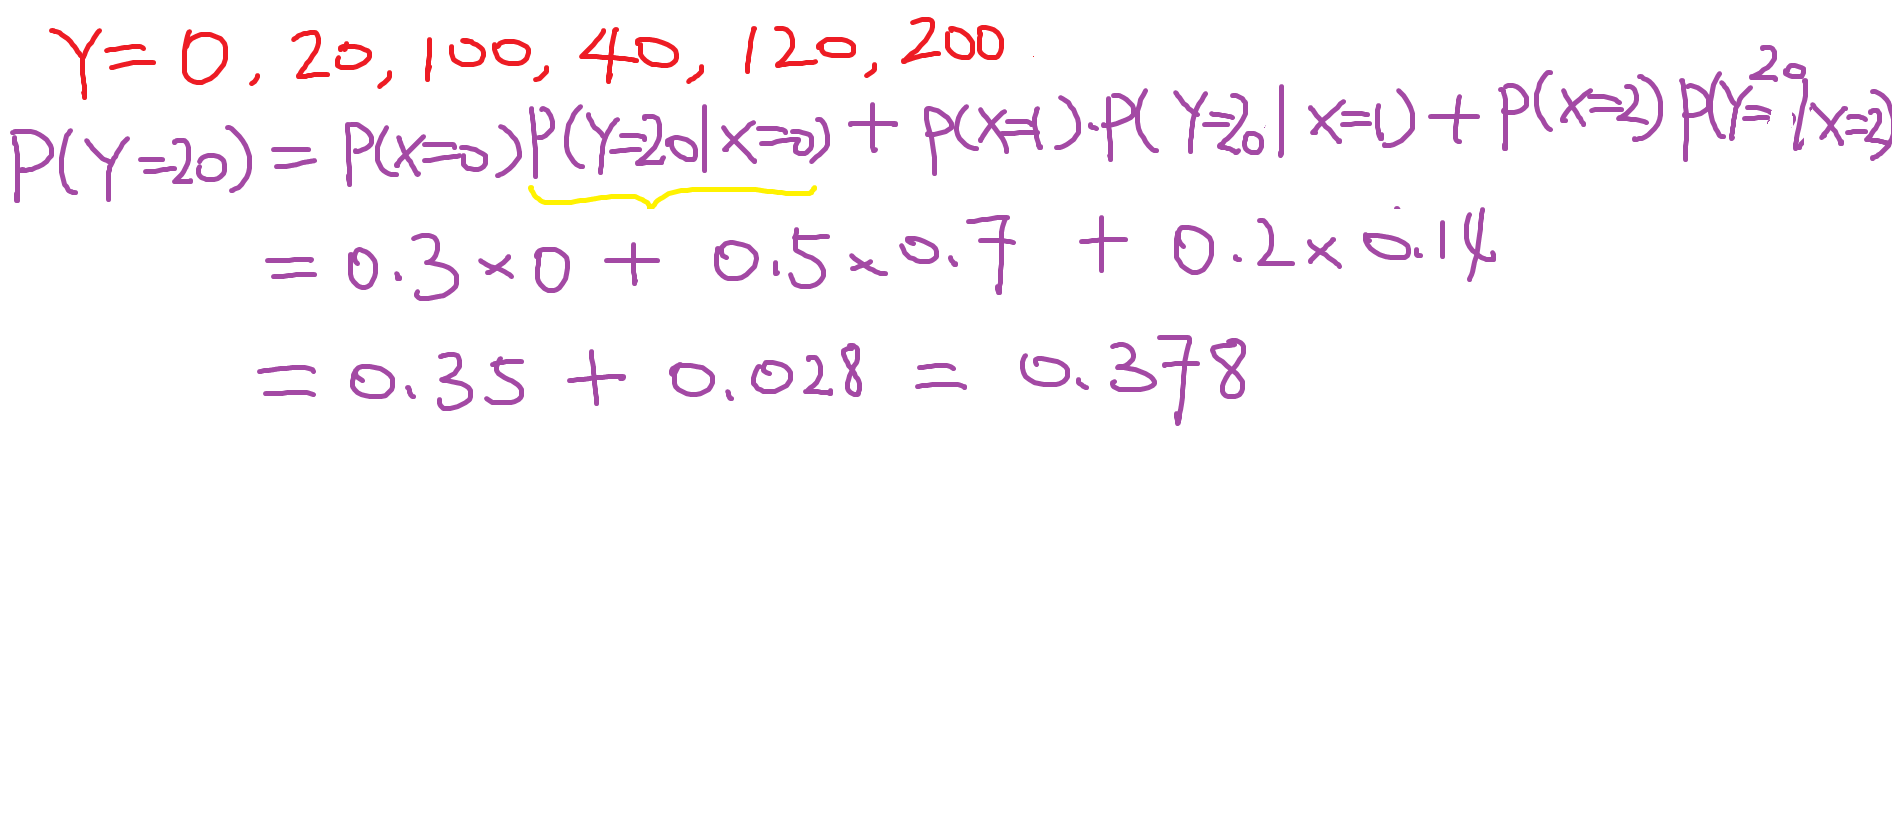 Y=0, 20, 100, 40, 120, 200
P(Y=20) = P(X=0)P(Y=20|X=0) + P(X=1)·P(Y=20|X=1) + P(X=2)P(Y=20|X=2)
= 0.3×0 + 0.5×0.7 + 0.2×0.14
= 0.35 + 0.028 = 0.378